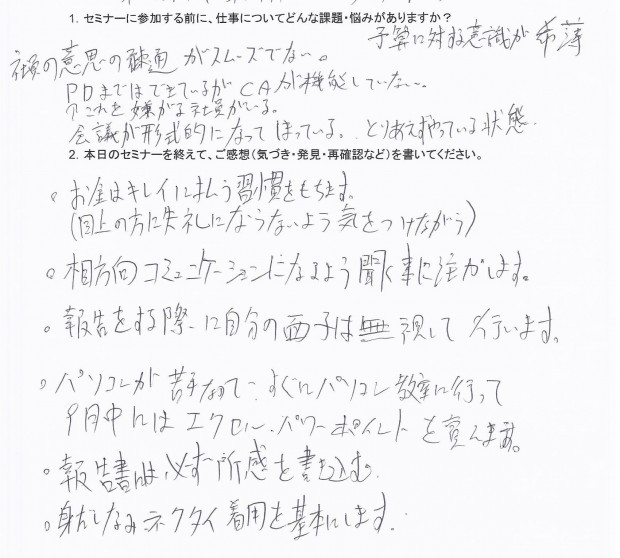 1. セミナーに参加する前に、仕事についてどんな課題・悩みがありますか？
予算に対する意識が希薄
社員の意思の疎通がスムーズでない。
PDまではできているがCAが機能していない。
↑これを嫌がる社員がいる。
会議が形式的になってしまっている。とりあえずやっている状態
2. 本日のセミナーを終えて、ご感想（気づき・発見・再確認など）を書いてください。
。お金はキレイに払う習慣をもちます。
（目上の方に失礼にならないよう気をつけながら）
。相方向コミュニケーションになるよう聞く事に注力します。
。報告をする際に自分の面子は無視して行います。
。パソコンが苦手なので、すぐにパソコン教室に行って
9月中にはエクセル、パワーポイントを覚えます。
。報告書は必ず所感を書き込む
。身だしなみネクタイ着用を基本にします。